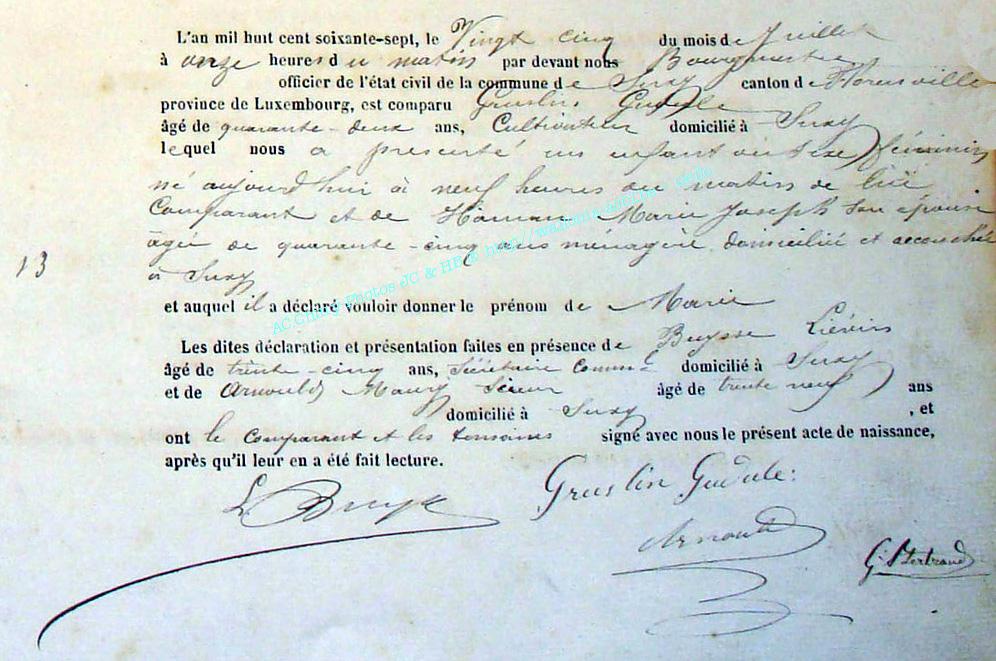 L'an mil huit cent soixante-sept, le Vingt cinq du mois de Juillet
à onze heures du matin par devant nous Bourgmestre
officier de l'état civil de la commune de Suxy canton de Florenville
province de Luxembourg, est comparu Gruslin Gudule
âgé de quarante-deux ans, Cultivateur domicilié à Suxy
lequel nous a présenté un enfant du sexe féminin
né aujourd'hui à neuf heures du matin de lui
Comparant et de Haman Marie Joseph son épouse
âgée de quarante-cinq ans ménagère domiciliée et accouchée
13
à Suxy
et auquel il a déclaré vouloir donner le prénom de Marie
Les dites déclaration et présentation faites en présence de Buysse Liévin
âgé de trente-cinq ans, Sécrétaire Comm<sup>l</sup> domicilié à Suxy
et de Arnould Maury Scieur âgé de trente neuf ans
domicilié à Suxy , et
ont le comparant et les témoins signé avec nous le présent acte de naissance,
après qu'il leur en a été fait lecture.
L Buysse Gruslin Gudule:
Arnould
G. Bertrand
AC Chiny Photos JC & HB @ http://